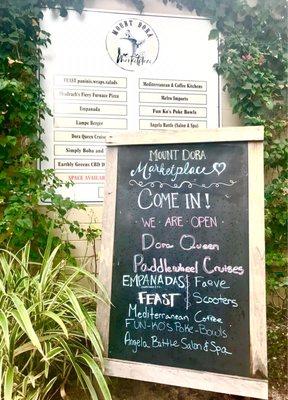 MOUNT DORA
Marketplace
FEAST paninis,wraps,salads
Shadrach's Fiery Furnace Pizza
Empanada
Lampe Berger
Dora Queen Cruise
Simply Boho and
Earthly Greens CBD
SPACE AVAILABLE
Mediterranean & Coffee Kitchens
Metro Imports
Fun Ko's Poke Bowls
Angela Battle (Salon & Spa)
MOUNT DORA
Marketplace
COME IN!
WE ARE OPEN
Dora Queen
Paddlewheel Cruises
EMPANADAS
FEAST
Fave
Scooters
Mediterranean Coffee
FUN-KO'S Poke-Bowls
Angela Battle Salon & Spa